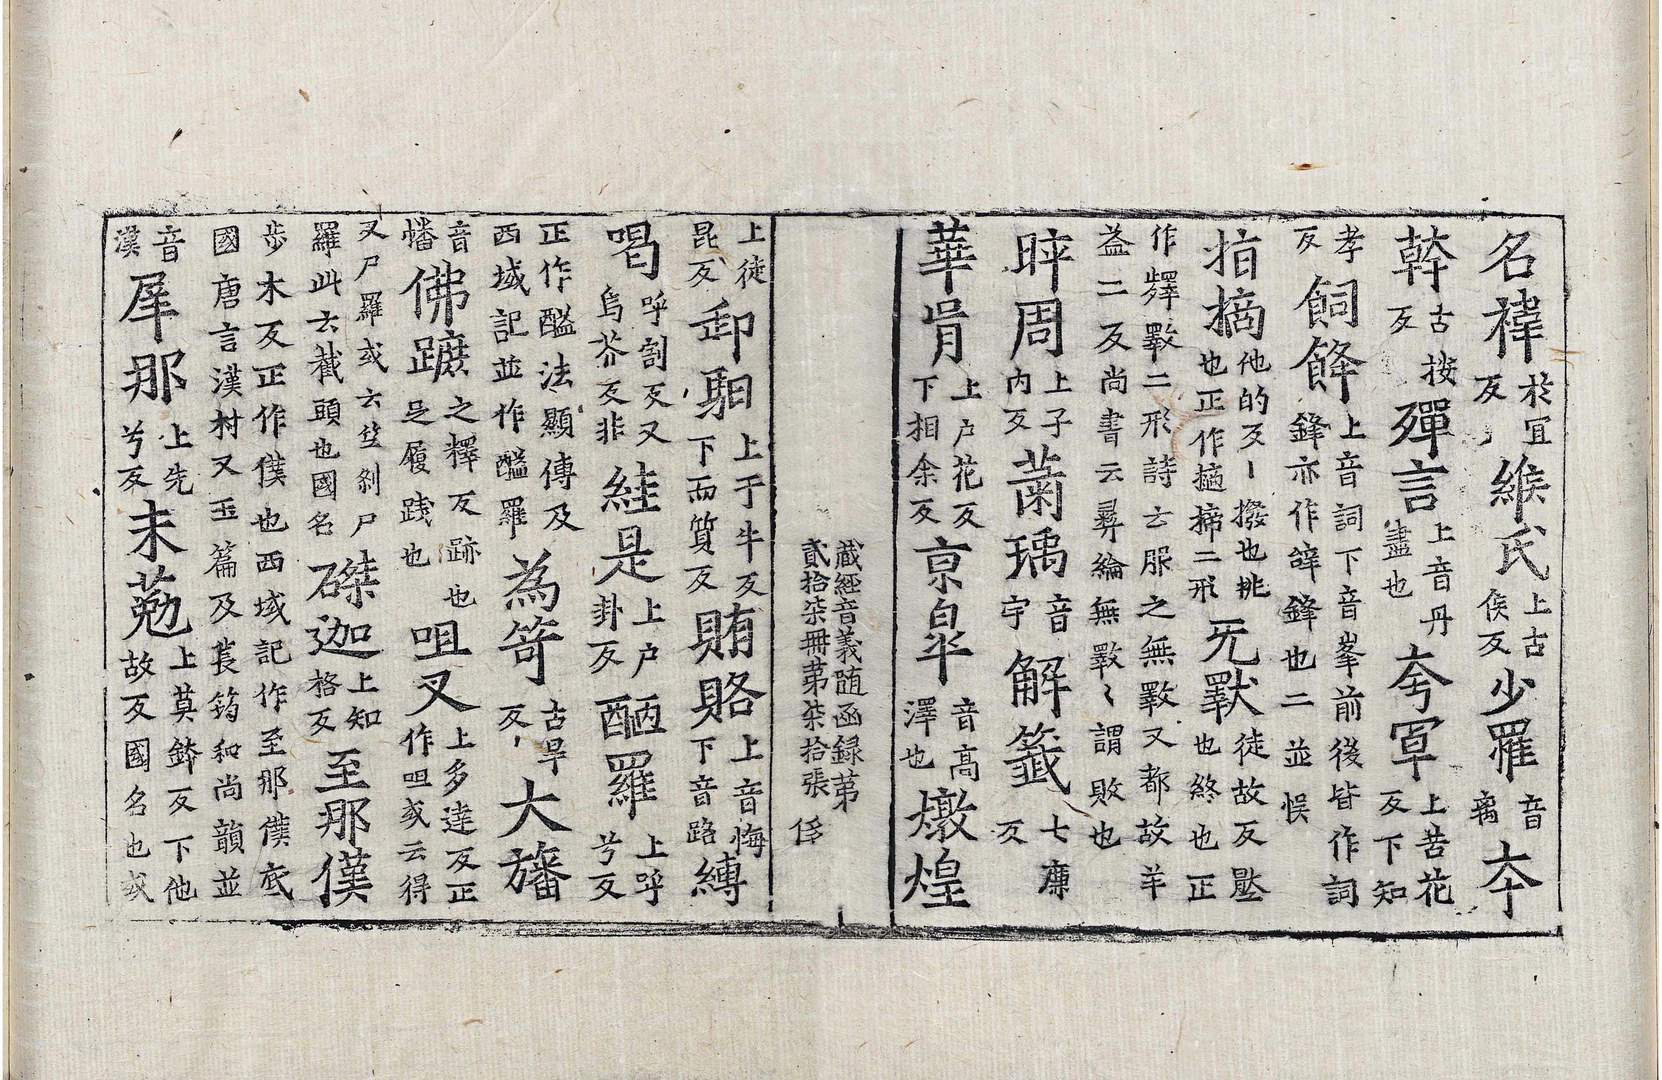 名禕於宜反緱氏上古侯反少羅音离夲
幹古按反殫言上音丹盡也夸罩上苦花反下知
孝反飼䬹上音詞下音峯前後皆作詞鋒亦作䛊鋒也二並悮
指摘他的反丨撥也挑也正作擿摕二形旡斁徒故反猒也終也正
作㸉斁二形詩云服之無斁又都故羊益二反尚書云彝倫無斁〻謂敗也
晬周上子內反蘜瑀音宇解籤七廉反
華胥上戶花反下相余反京臯音高澤也燉煌
藏經音義随函録第
貳拾柒冊第柒拾張 侈
上徒昆反卸馹上于牛反下而質反賄賂上音悔下音路縛
喝呼割反又烏芥反非絓是上戶卦反䤈羅上呼兮反
正作醯法顯傳及西域記並作醯羅為笴古旱反大旛
音幡佛蹠之釋反跡也足履踐也呾叉上多達反正作呾或云得
叉尸羅或云竺剎尸羅此云截頭也國名磔迦上知格反至那僕
步木反正作僕也西域記作至那僕底國唐言漢村又玉篇及萇筠和尚韻並
音漢犀那上先兮反未蒭上莫鉢反下他故反國名也或